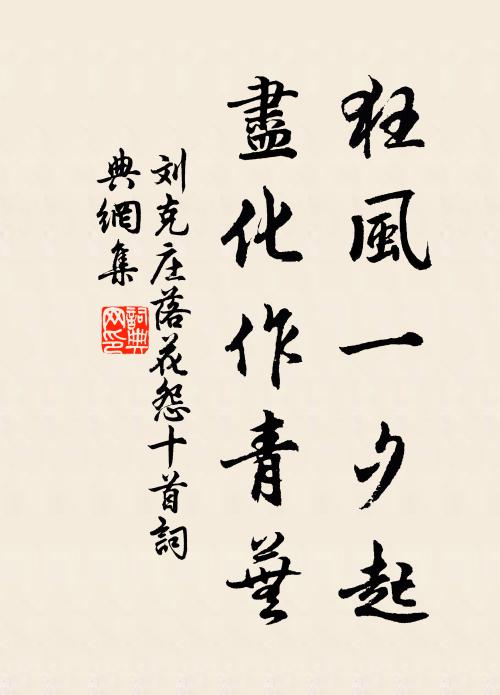 狂風一夕起
盡化作青蕪
刘克庄落花怨十首詞
典網集
詞典網印